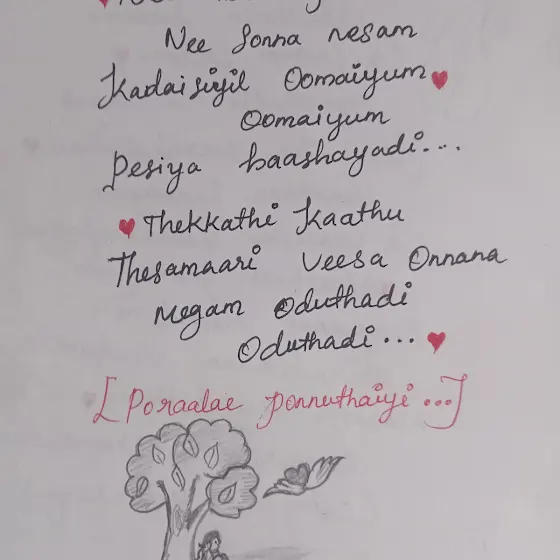 Nee Sonna nesam
Kadaisiyil Oomaiyum
Oomaiyum
Pesiya baashayadi...
Thekkathi Kaathu
Thesamaari Veesa Onnana
Megam Oduthadi
Oduthadi...
[Poraalae ponnuthaiyi...]